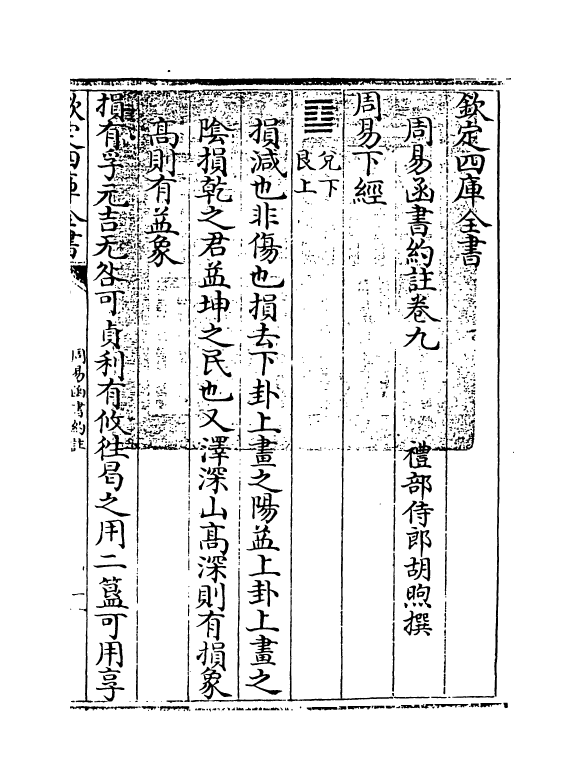 欽定四庫全書
周易函書約註卷九
禮部侍郎胡煦撰
周易下經
䷨
兌下
艮上
損減也非傷也損去下卦上畫之陽益上卦上畫之
陰損乾之君益坤之民也又澤深山高深則有損象
高則有益象
損有孚元吉无咎可貞利有攸往曷之用二簋可用享
欽定四庫全書
周易函書約註
一